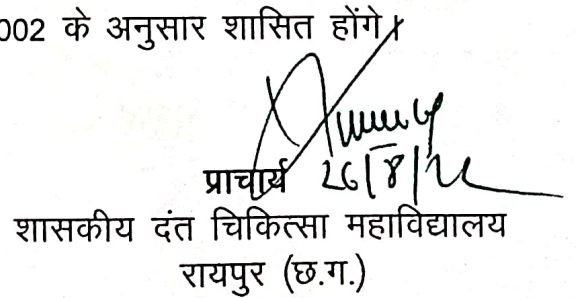 002 के अनुसार शासित होंगे
प्राचार्य 26/8/22
शासकीय दंत चिकित्सा महाविद्यालय
रायपुर (छ.ग.)